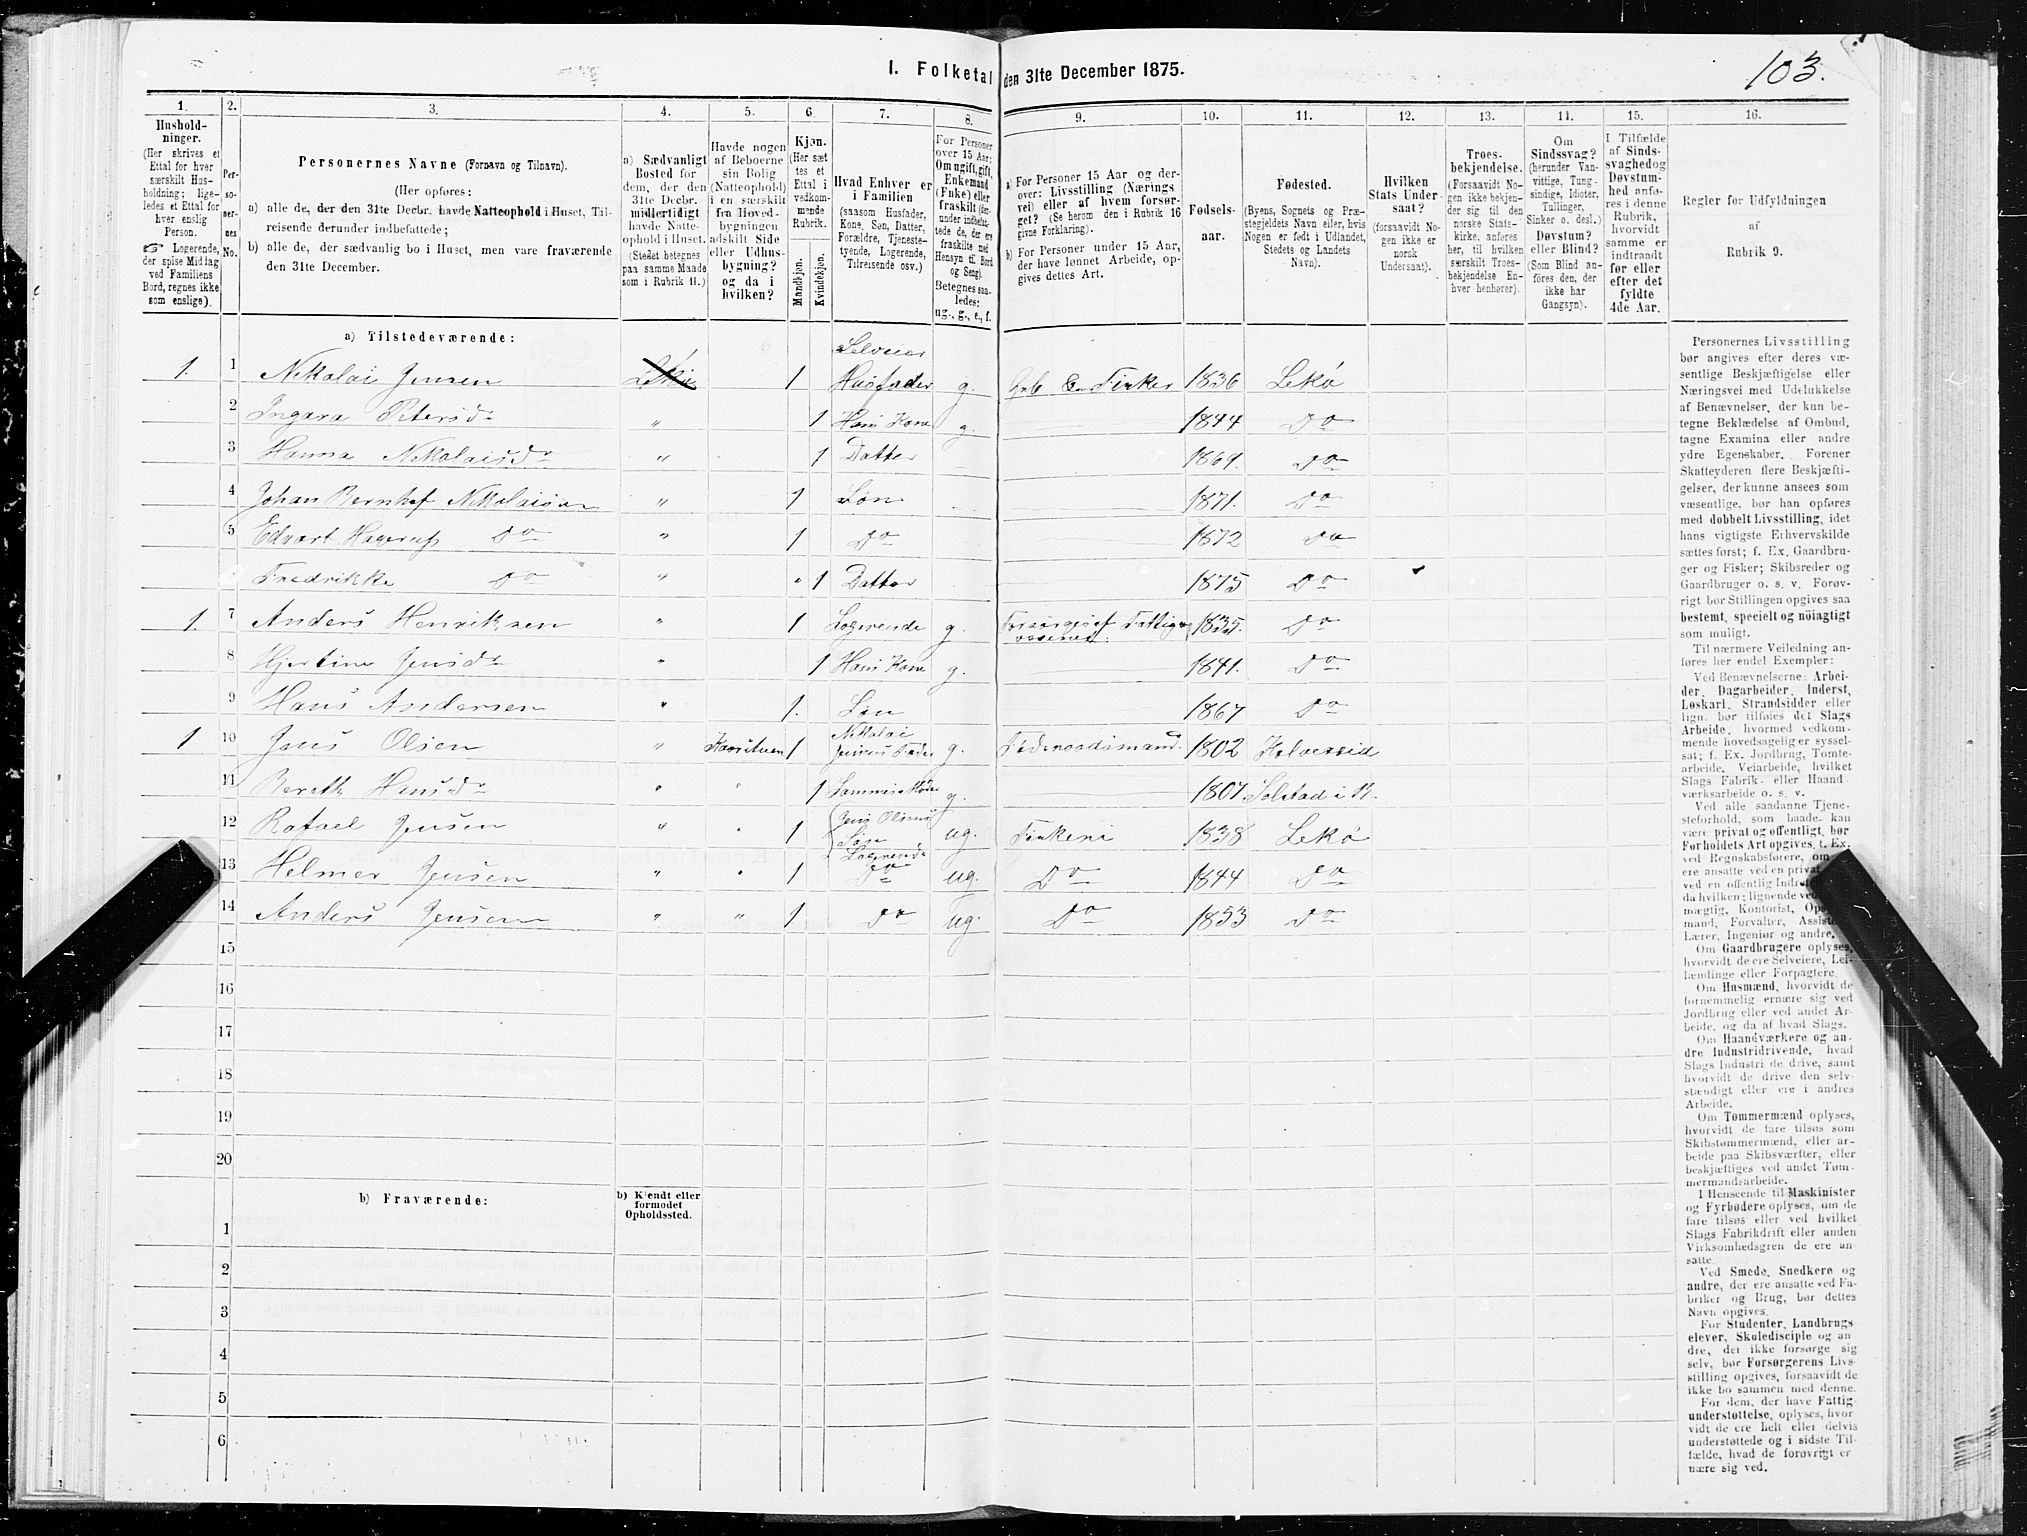 I. Folketal den 31te December 1875.
103.
1.
2.
3.
4.
5.
6.
7.
8.
9.
10.
11.
12.
13.
14.
15.
16.
Hushold-
ninger.
(Her skrives et
Ettal for hver
særskilt Hus-
holdning; lige-
ledes et Ettal for
hver enslig
Person.
☞ Logerende,
der spise Middag
ved Familiens
Bord, regnes ikke
som enslige).
Per-
so-
ner-
nes
No.
Personernes Navne (Fornavn og Tilnavn).
(Her opføres:
a) alle de, der den 31te Decbr. havde Natteophold i Huset, Til-
reisende derunder indbefattede;
b) alle de, der sædvanlig bo i Huset, men vare fraværende
den 31te December.
a) Sædvanligt
Bosted for
dem, der den
31te Decbr.
midlertidigt
havde Natte-
ophold i Huset.
(Stedet betegnes
paa samme Maade
som i Rubrik 11.)
Havde nogen
af Beboerne
sin Bolig
(Natteophold)
i en særskilt
fra Hoved-
bygningen
adskilt Side
eller Udhus-
bygning?
og da i
hvilken?
Kjøn.
(Her sæt
tes et
Ettal i
vedkom-
mende
Rubrik.
Mandkjøn.
Kvindekjøn.
Hvad Enhver er
i Familien
(saasom Husfader,
Kone, Søn, Datter,
Forældre, Tjeneste-
tyende, Logerende,
Tilreisende osv.)
For Personer
over 15 Aar:
Om ugift, gift,
Enkemand
(Enke) eller
fraskilt (der-
under indbefat-
tede de, der ere
fraskilte med
Hensyn til Bord
og Seng).
Betegnes saa-
ledes:
ug., g., e., f.
a) For Personer 15 Aar og der-
over: Livsstilling (Nærings
vei) eller af hvem forsør-
get? (Se herom den i Rubrik 16
givne Forklaring).
b) For Personer under 15 Aar,
der have lønnet Arbeide, op-
gives dettes Art.
Fødsels-
aar.
Fødested.
(Byens, Sognets og Præ-
stegjeldets Navn eller, hvis
Nogen er født i Udlandet,
Stedets og Landets
Navn).
Hvilken
Stats Under-
saat?
(forsaavidt No-
gen ikke er
norsk
Undersaat).
Troes-
bekjendelse.
(Forsaavidt No-
gen ikke bekjen-
der sig til den
norske Stats-
kirke, anføres
her, til hvilken
særskilt Troes-
bekjendelse En-
hver henhører).
Om
Sindssvag?
(herunder Van-
vittige, Tung-
sindige, Idioter,
Tullinger,
Sinker o. desl.)
Døvstum?
eller Blind?
(Som Blind an-
føres den, der
ikke har
Gangsyn).
I Tilfælde
af Sinds-
svaghed og
Døvstum-
hed anfø-
res i denne
Rubrik,
hvorvidt
samme er
indtraadt
før eller
efter det
fyldte
4de Aar.
Regler for Udfyldningen
af
Rubrik 9.
a) Tilstedeværende:
Selveier
1. 1 Nikolai Jensen Lekø 1 Husfader g. 1836 Lekø
2 Petersdr " 1 Hans Kone g. 1844 Do
3 Hanna Nikolaisdr " 1 Datter 1869. Do
4 Johan Bernhof Nikolaisen " 1 Søn 1871. Do
5 Edvart Hagerup Do " 1 Do 1872 Do
Fredrikke Do " " 1 Datter 1875 Do
1. 7 Anders Henriksen " 1 Logerende g. Forsørges af Fattigv 1835. Do
8 Jensdr " 1 Hans Kone g. 1841. Do
9 Hans Andersen " 1. Søn 1867 Do
1 10 Jens Olsen " 1 Nikolai
Jensens Fader g. Føderaadsmand. 1802
11 Bereth Hansdr " " 1 Sammes Moder g. 1807 Solstad i B.
12 Rafael Jensen " " 1 Jens Olsens
Søn
Logerende ug. Fiskeri 1838 Lekø
13 Helmer Jensen " " 1 Do ug. Do 1844 Do
14 Anders Jensen " " 1 Do ug. Do 1853 Do
15
16
17
18
19
20
b) Fraværende:
b) Kjendt eller
formodet
Opholdssted.
1
2
3
4
5
6
Personernes Livsstilling
bør angives efter deres væ-
sentlige Beskjæftigelse eller
Næringsvei med Udelukkelse
af Benævnelser, der kun be-
tegne Beklædelse af Ombud,
tagne Examina eller andre
ydre Egenskaber. Forener
Skatteyderen flere Beskjæfti-
gelser, der kunne ansees som
væsentlige, bør han opføres
med dobbelt Livsstilling, idet
hans vigtigste Erhvervskilde
sættes først; f. Ex. Gaardbru-
ger og Fisker; Skibsreder og
Gaardbruger o. s. v. Forøv-
rigt bør Stillingen opgives saa
bestemt, specielt og nøiagtigt
som muligt.
Til nærmere Veiledning an-
føres her endel Exempler:
Ved Benævnelserne: Arbei-
der, Dagarbeider, Inderst,
Løskarl, Strandsidder eller
lign. bør tilføies det Slags
Arbeide, hvormed vedkom-
mende hovedsagelig er syssel-
sat; f. Ex. Jordbrug, Tomte-
arbeide, Veiarbeide, hvilket
Slags Fabrik- eller Haand-
værksarbeide o. s. v.
Ved alle saadanne Tjene-
steforhold, som baade kan
være privat og offentligt, bør
Forholdets Art opgives, f. Ex.
ved Regnskabsførere, om
ere ansatte ved en privat
ved en offentlig Indr
da hvilken; lignende ved
mægtig, Kontorist, Op
mand, Forvalter, Assist
Lærer, Ingeniør og andre.
Om Gaardbrugere oplyses,
hvorvidt de ere Selveiere, Lei-
lændinge eller Forpagtere.
Om Husmænd, hvorvidt de
fornemmelig ernære sig ved
Jordbrug eller ved andet Ar-
beide, og da af hvad Slags.
Om Haandværkere og an-
dre Industridrivende, hvad
Slags Industri de drive, samt
hvorvidt de drive den selv-
stændigt eller ere i andres
Arbeide.
Om Tømmermænd oplyses,
hvorvidt de fare tilsøs som
Skibstømmermænd, eller ar-
beide paa Skibsværfter, eller
beskjæftiges ved andet Tøm-
mermandsarbeide.
I Henseende til Maskinister
og Fyrbødere oplyses, om de
fare tilsøs eller ved hvilket
Slags Fabrikdrift eller anden
Virksomhedsgren de ere an-
satte.
Ved Smede, Snedkere og
andre, der ere ansatte ved Fa-
briker og Brug, bør dettes
Navn opgives.
For Studenter, Landbrugs
elever, Skoledisciple og an
dre, der ikke forsørge sig
selv, bør Forsørgerens Livs-
stilling opgives, forsaavidt de
ikke bo sammen med denne.
For dem, der have Fattig
understøttelse, oplyses, hvor
vidt de ere helt eller delvis
understøttede og i sidste Til-
fælde, hvad de forøvrigt er
nære sig ved.